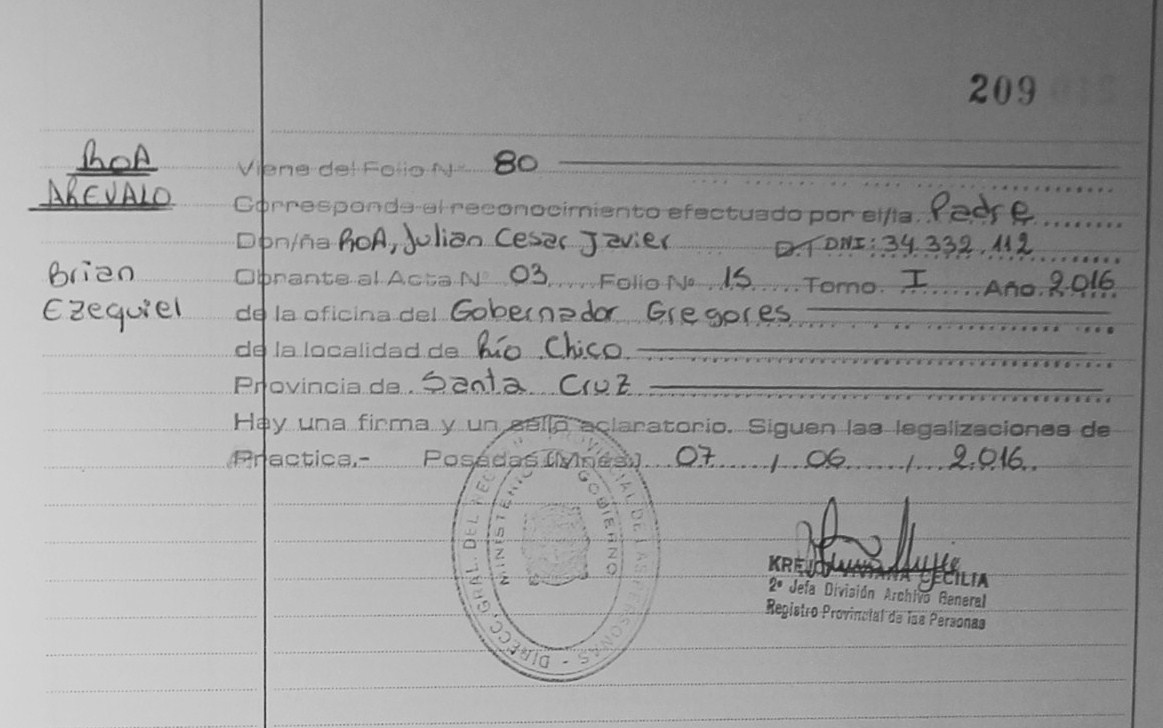 209
ROA
AREVALO
Brian
Ezequiel
Viene del Folio Nº 80
Corresponde al reconocimiento efectuado por el/la Padre
Don/ña ROA, Julian Cesar Javier D.T DNI: 34.332.112
Obrante al Acta Nº 03 Folio Nº 15 Tomo I Año 2.016
de la oficina del Gobernador Gregores
de la localidad de Río Chico
Provincia de Santa Cruz
Hay una firma y un sello aclaratorio. Siguen las legalizaciones de
Practica.- Posadas (Mnes.) 07 / 06 / 2.016.
DIRECC. GRAL. DEL REG. PROVINCIAL DE LAS PERSONAS -
MINISTERIO GOBIERNO
CECILIA
2º Jefa División Archivo General
Registro Provincial de las Personas